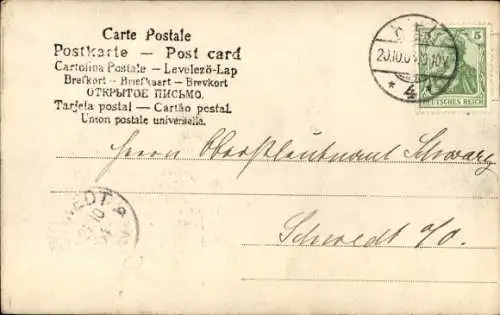 Carte Postale
Postkarte — Post card
Cartolina Postale — Levelező-Lap
Brefkort — Briefkaart — Brevkort
ОТКРЫТОЕ ПИСЬМО.
Tarjeta postal — Cartão postal.
Union postale universelle.
5
20.10.04
* 4
DEUTSCHES REICH
Herrn Oberstleutnant Schwarz
Schwedt a/O.